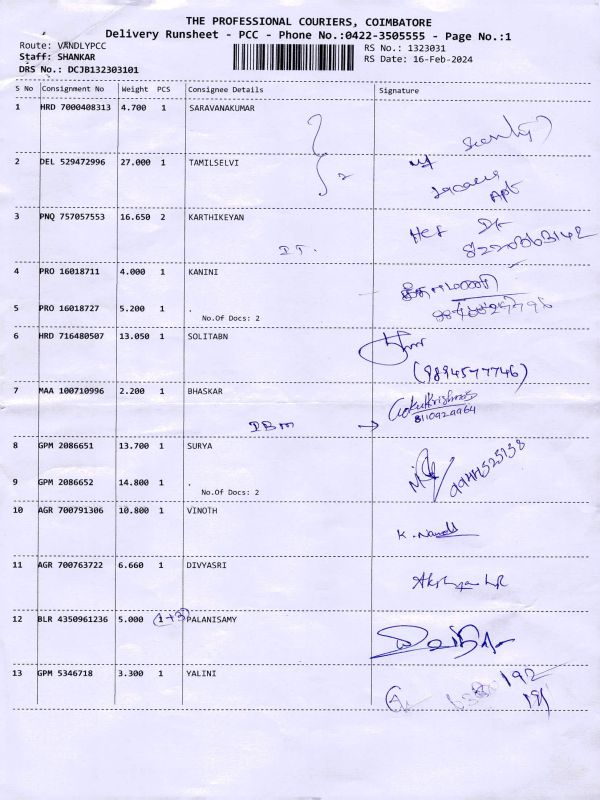 THE PROFESSIONAL COURIERS, COIMBATORE
Delivery Runsheet - PCC - Phone No.:0422-3505555 - Page No.:1
Route: VANDLYPCC RS No.: 1323031
Staff: SHANKAR RS Date: 16-Feb-2024
DRS No.: DCJB132303101
S No Consignment No Weight PCS Consignee Details Signature
1 HRD 7000408313 4.700 1 SARAVANAKUMAR
2 DEL 529472996 27.000 1 TAMILSELVI
2
Apt
3 PNQ 757057553 16.650 2 KARTHIKEYAN
4 PRO 16018711 4.000 1 KANINI
5 PRO 16018727 5.200 1 .
No.Of Docs: 2
6 HRD 716480507 13.050 1 SOLITABN
(9894577746)
7 MAA 100710996 2.200 1 BHASKAR
IBM →
8 GPM 2086651 13.700 1 SURYA
9 GPM 2086652 14.800 1 .
No.Of Docs: 2
10 AGR 700791306 10.800 1 VINOTH
11 AGR 700763722 6.660 1 DIVYASRI
12 BLR 4350961236 5.000 1+3 PALANISAMY
13 GPM 5346718 3.300 1 YALINI
192